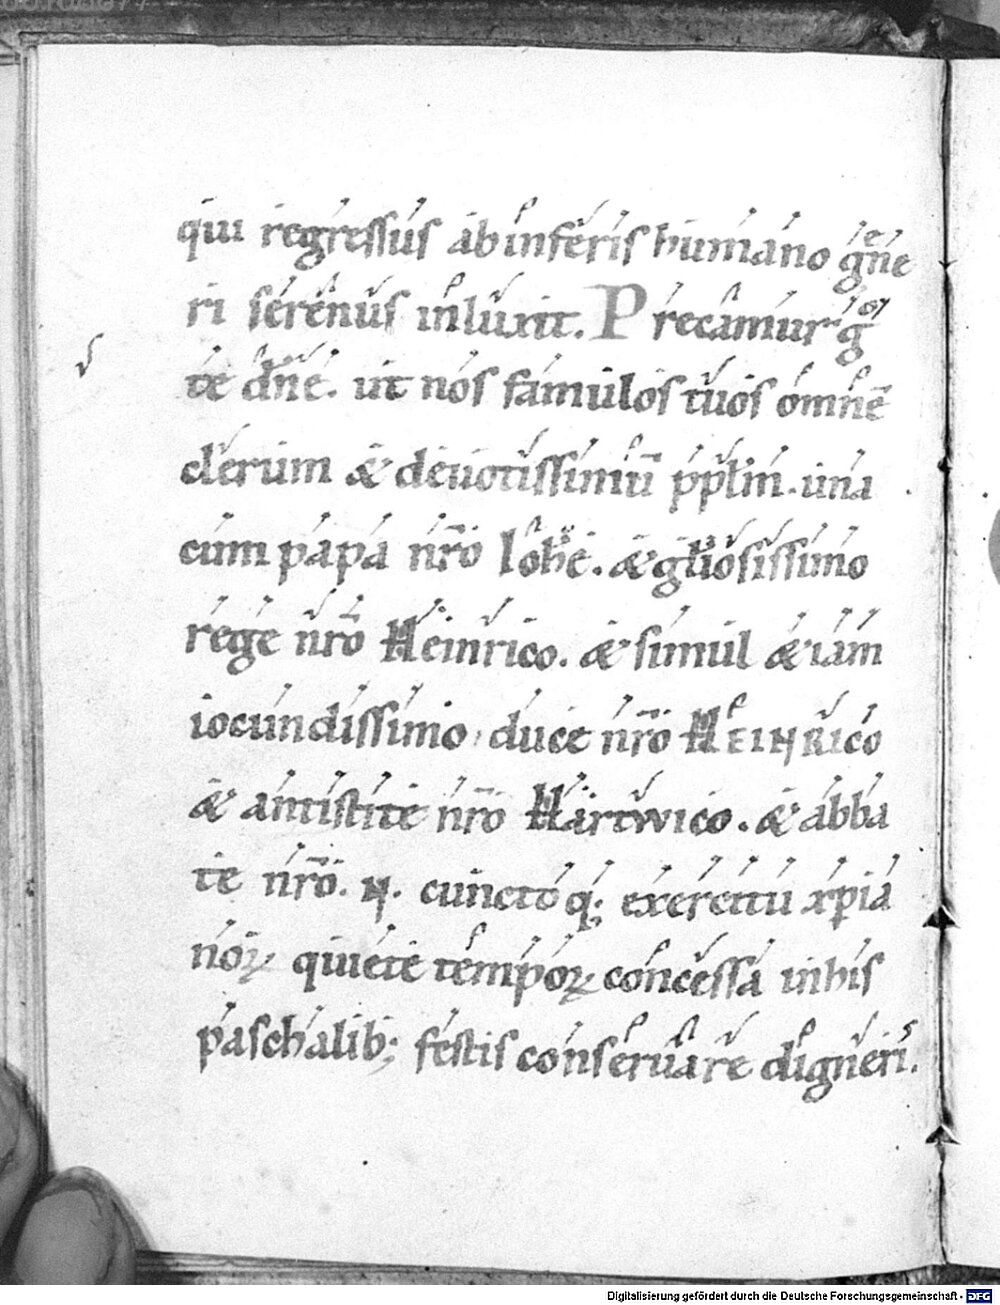 qui regressus ab inferis humano gñe
ri serenus inluxit. Precamur g̊
te dñe. ut nos famulos tuos omnē
clerum & deuotissimū pplm. una
cum papa nr̄o Iohe. & gl̄iosissimo
rege nr̄o Heinrico. & simul & iam
iocundissimo duce nr̄o HEINRIco
& antistite nr̄o Hartwico. & abba
te nr̄o. N. cuncto q; exercitu xp̄ia
noꝝ quiete tempoꝝ concessa in his
paschalib; festis conseruare digneris.
Digitalisierung gefördert durch die Deutsche Forschungsgemeinschaft - DFG